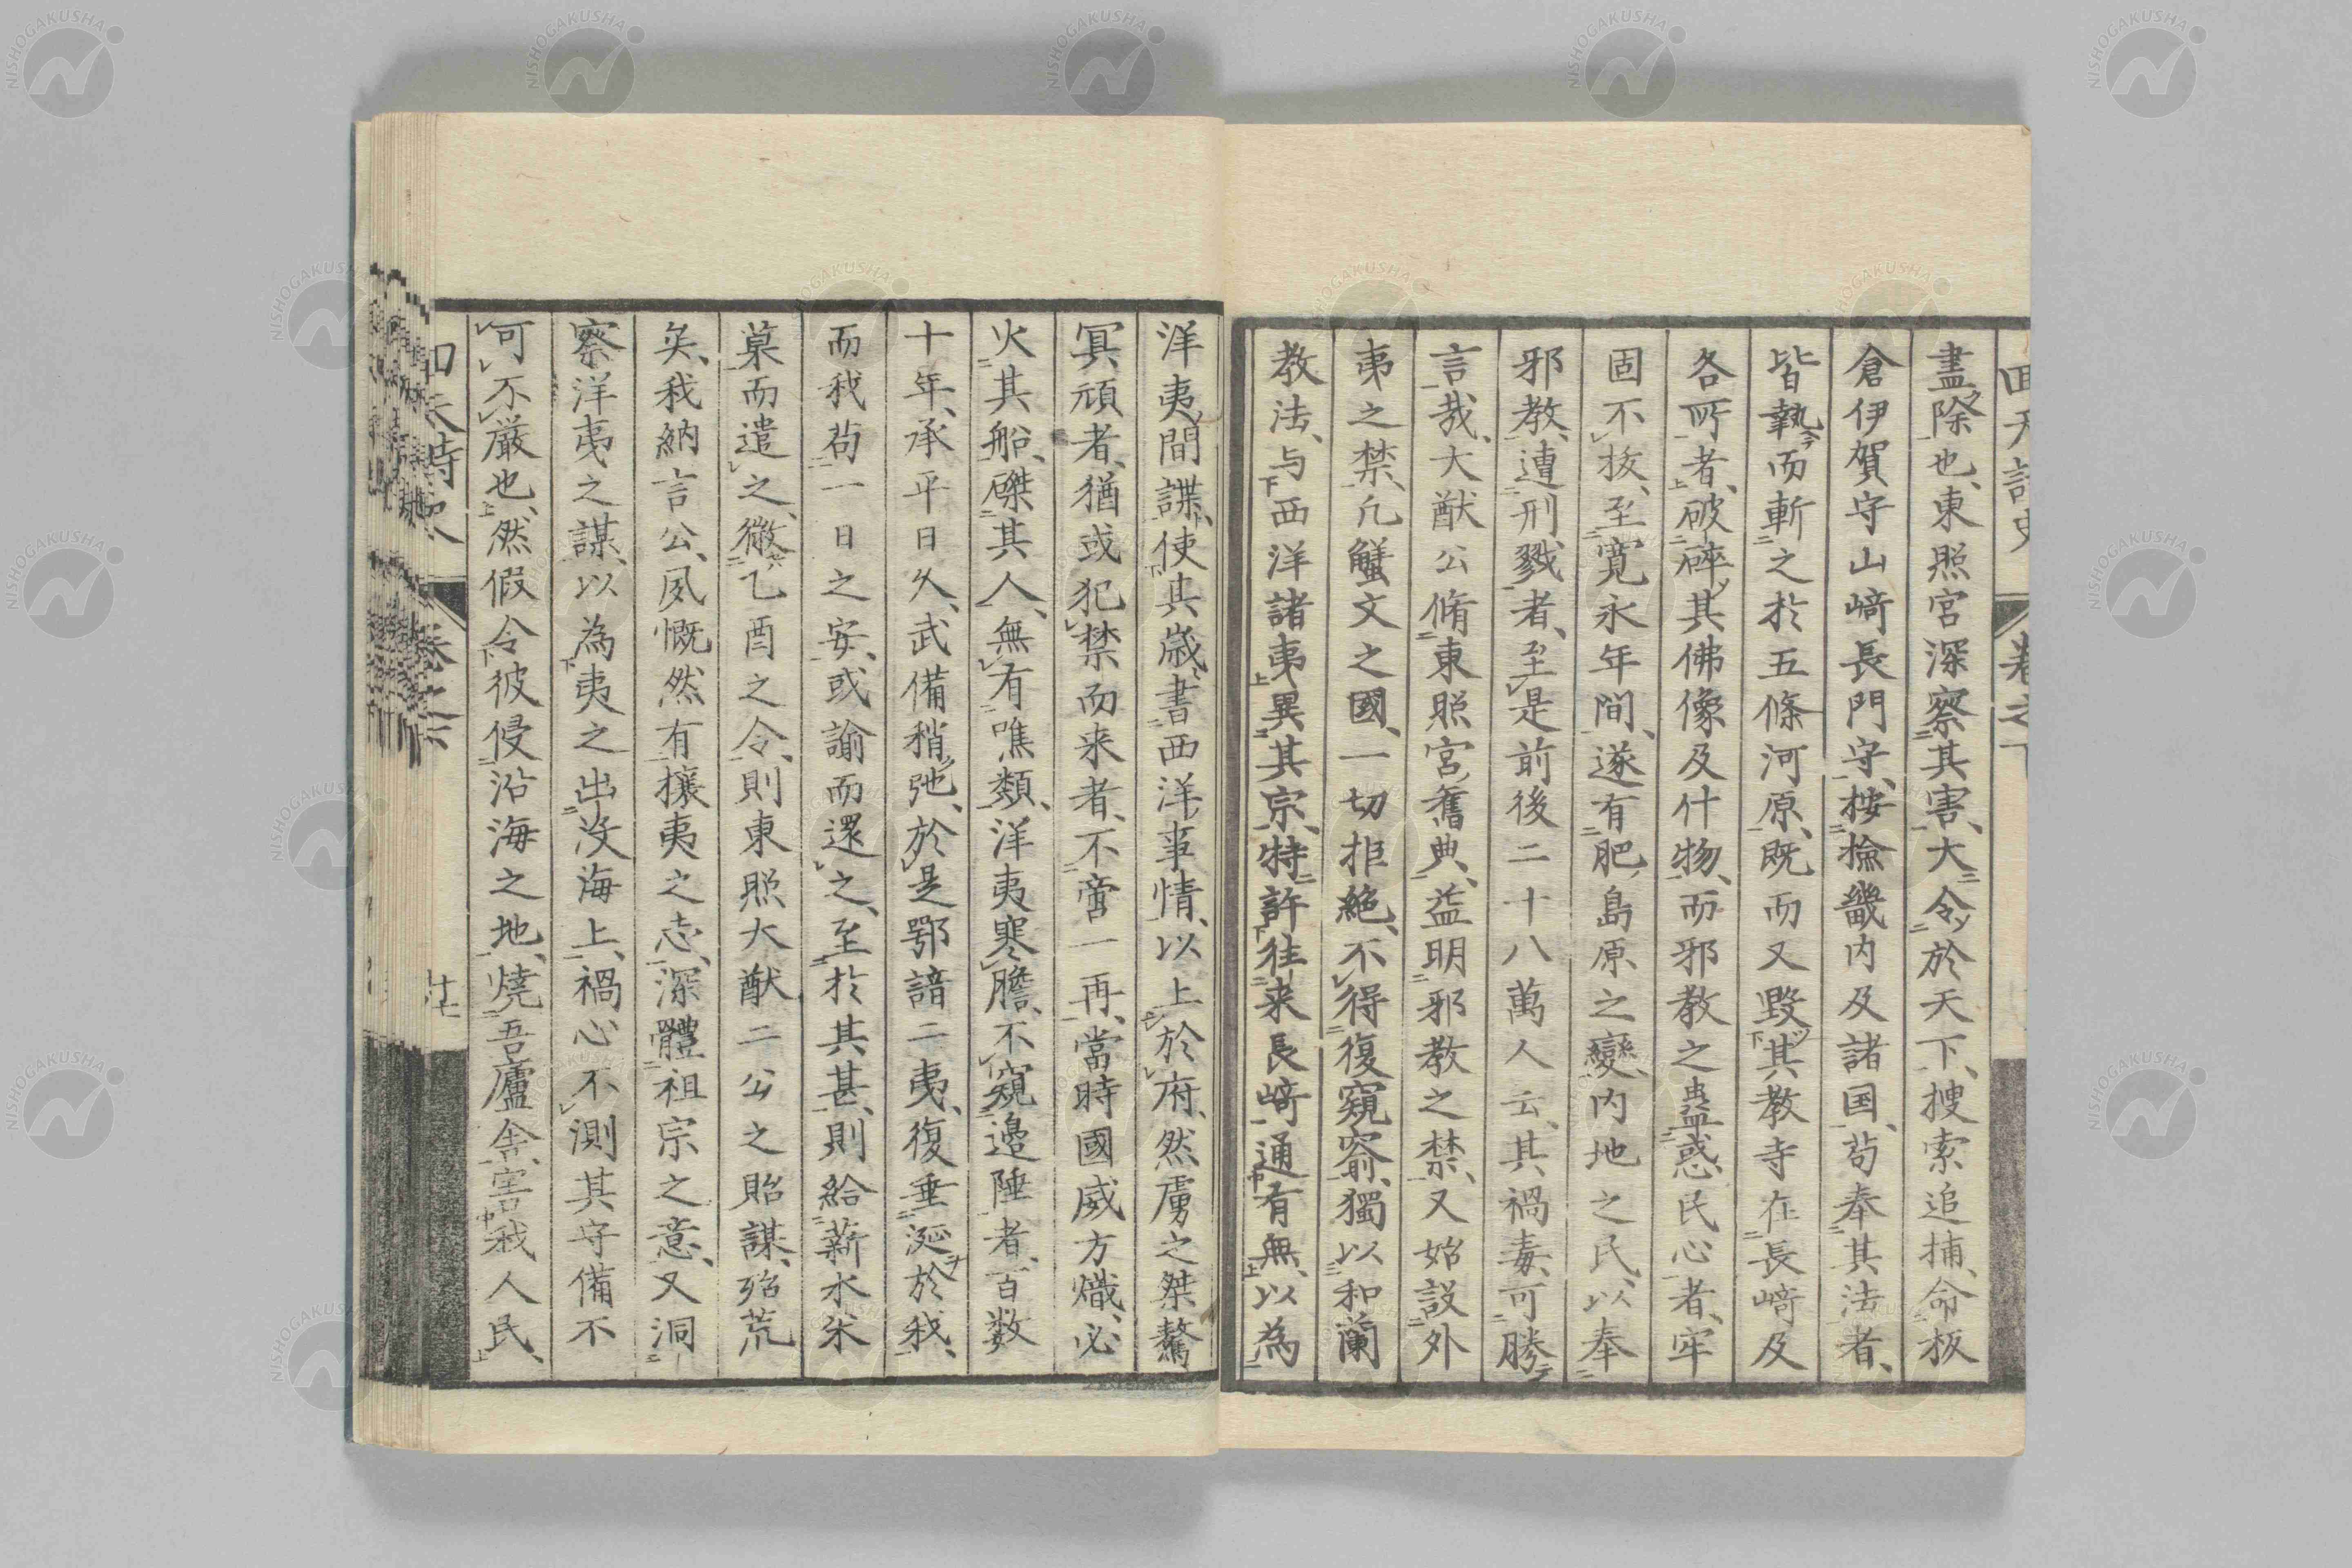 盡除也、東照宮深察其害、大令於天下、搜索追捕、命板
倉伊賀守山﨑長門守、按撿畿内及諸国、苟奉其法者、
皆執而斬之於五條河原、既而又毀其教寺在長﨑及
各所者、破碎其佛像及什物、而邪教之蠱惑民心者、牢
固不拔、至寬永年間、遂有肥島原之變、内地之民、以奉
邪教、遭刑戮者、至是前後二十八萬人云、其禍毒、可勝
言哉、大猷公脩東照宮舊典、益明邪教之禁、又始設外
夷之禁、凡蟹文之國、一切拒絶、不得復窺窬、獨以和蘭
教法、与西洋諸夷異其宗、特許往来長﨑、通有無、以為
洋夷間諜、使其歳書西洋事情、以上於府、然虜之桀驁
冥頑者、猶或犯禁而来者、不啻一再、當時國威方熾、必
火其船、磔其人、無有噍類、洋夷寒膽、不窺邊陲者、百数
十年、承平日久、武備稍弛、於是鄂諳二夷、復垂涎於我、
而我苟一日之安、或諭而還之、至於其甚、則給薪水米
菓而遣之、徴乙酉之令、則東照大猷二公之貽謀、殆荒
矣、我納言公、夙慨然有攘夷之志、深體祖宗之意、又洞
察洋夷之謀、以為夷之出没海上、禍心不測、其守備不
可不厳也、然假令彼侵沿海之地、燒吾廬舎、害我人民、